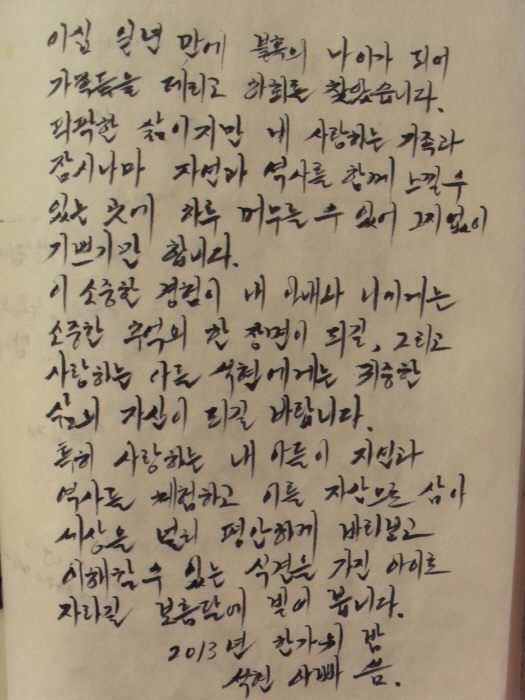 이십 일년 만에 불혹의 나이가 되어
가족들을 데리고 하회를 찾았습니다.
퍽퍽한 삶이지만 내 사랑하는 가족과
잠시나마 자연과 역사를 함께 느낄 수
있는 곳에 하루 머무를 수 있어 그지없이
기쁘기만 합니다.
이 소중한 경험이 내 아내와 나에게는
소중한 추억의 한 장면이 되길, 그리고
사랑하는 아들 석현에게는 귀중한
삶의 자산이 되길 바랍니다.
특히 사랑하는 내 아들이 자연과
역사를 체험하고 이를 자산으로 삼아
세상을 널리 평안하게 바라보고
이해할 수 있는 식견을 가진 아이로
자라길 보름달에 빌어 봅니다.
2013년 한가위 밤
석현 아빠 씀.